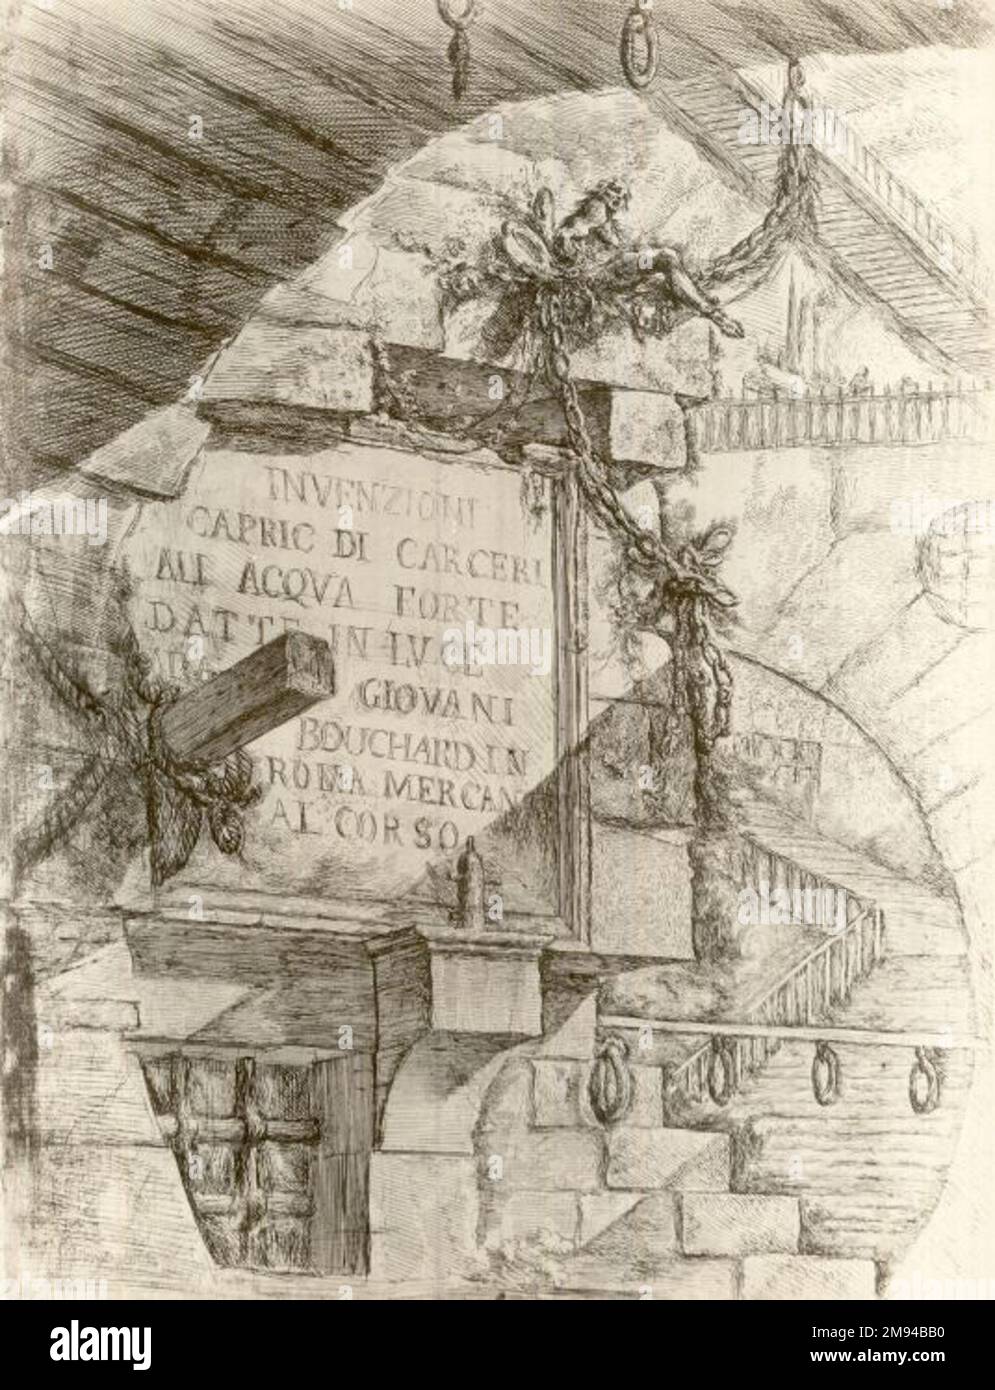 INVENZIONI
CAPRIC DI CARCERI
ALL ACQVA FORTE
DATTE IN LVCE
GIOVANI
BOUCHARD IN
ROMA MERCAN
AL CORSO
alamy
Image ID: 2M94BB0
www.alamy.com